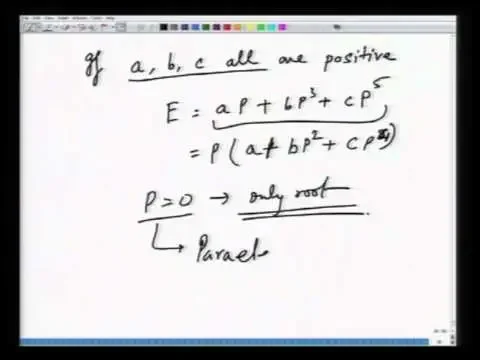 If a, b, c all are positive
E = aP + bP³ + cP⁵
= P(a + bP² + cP⁴)
P = 0 → only root
↳ Parael